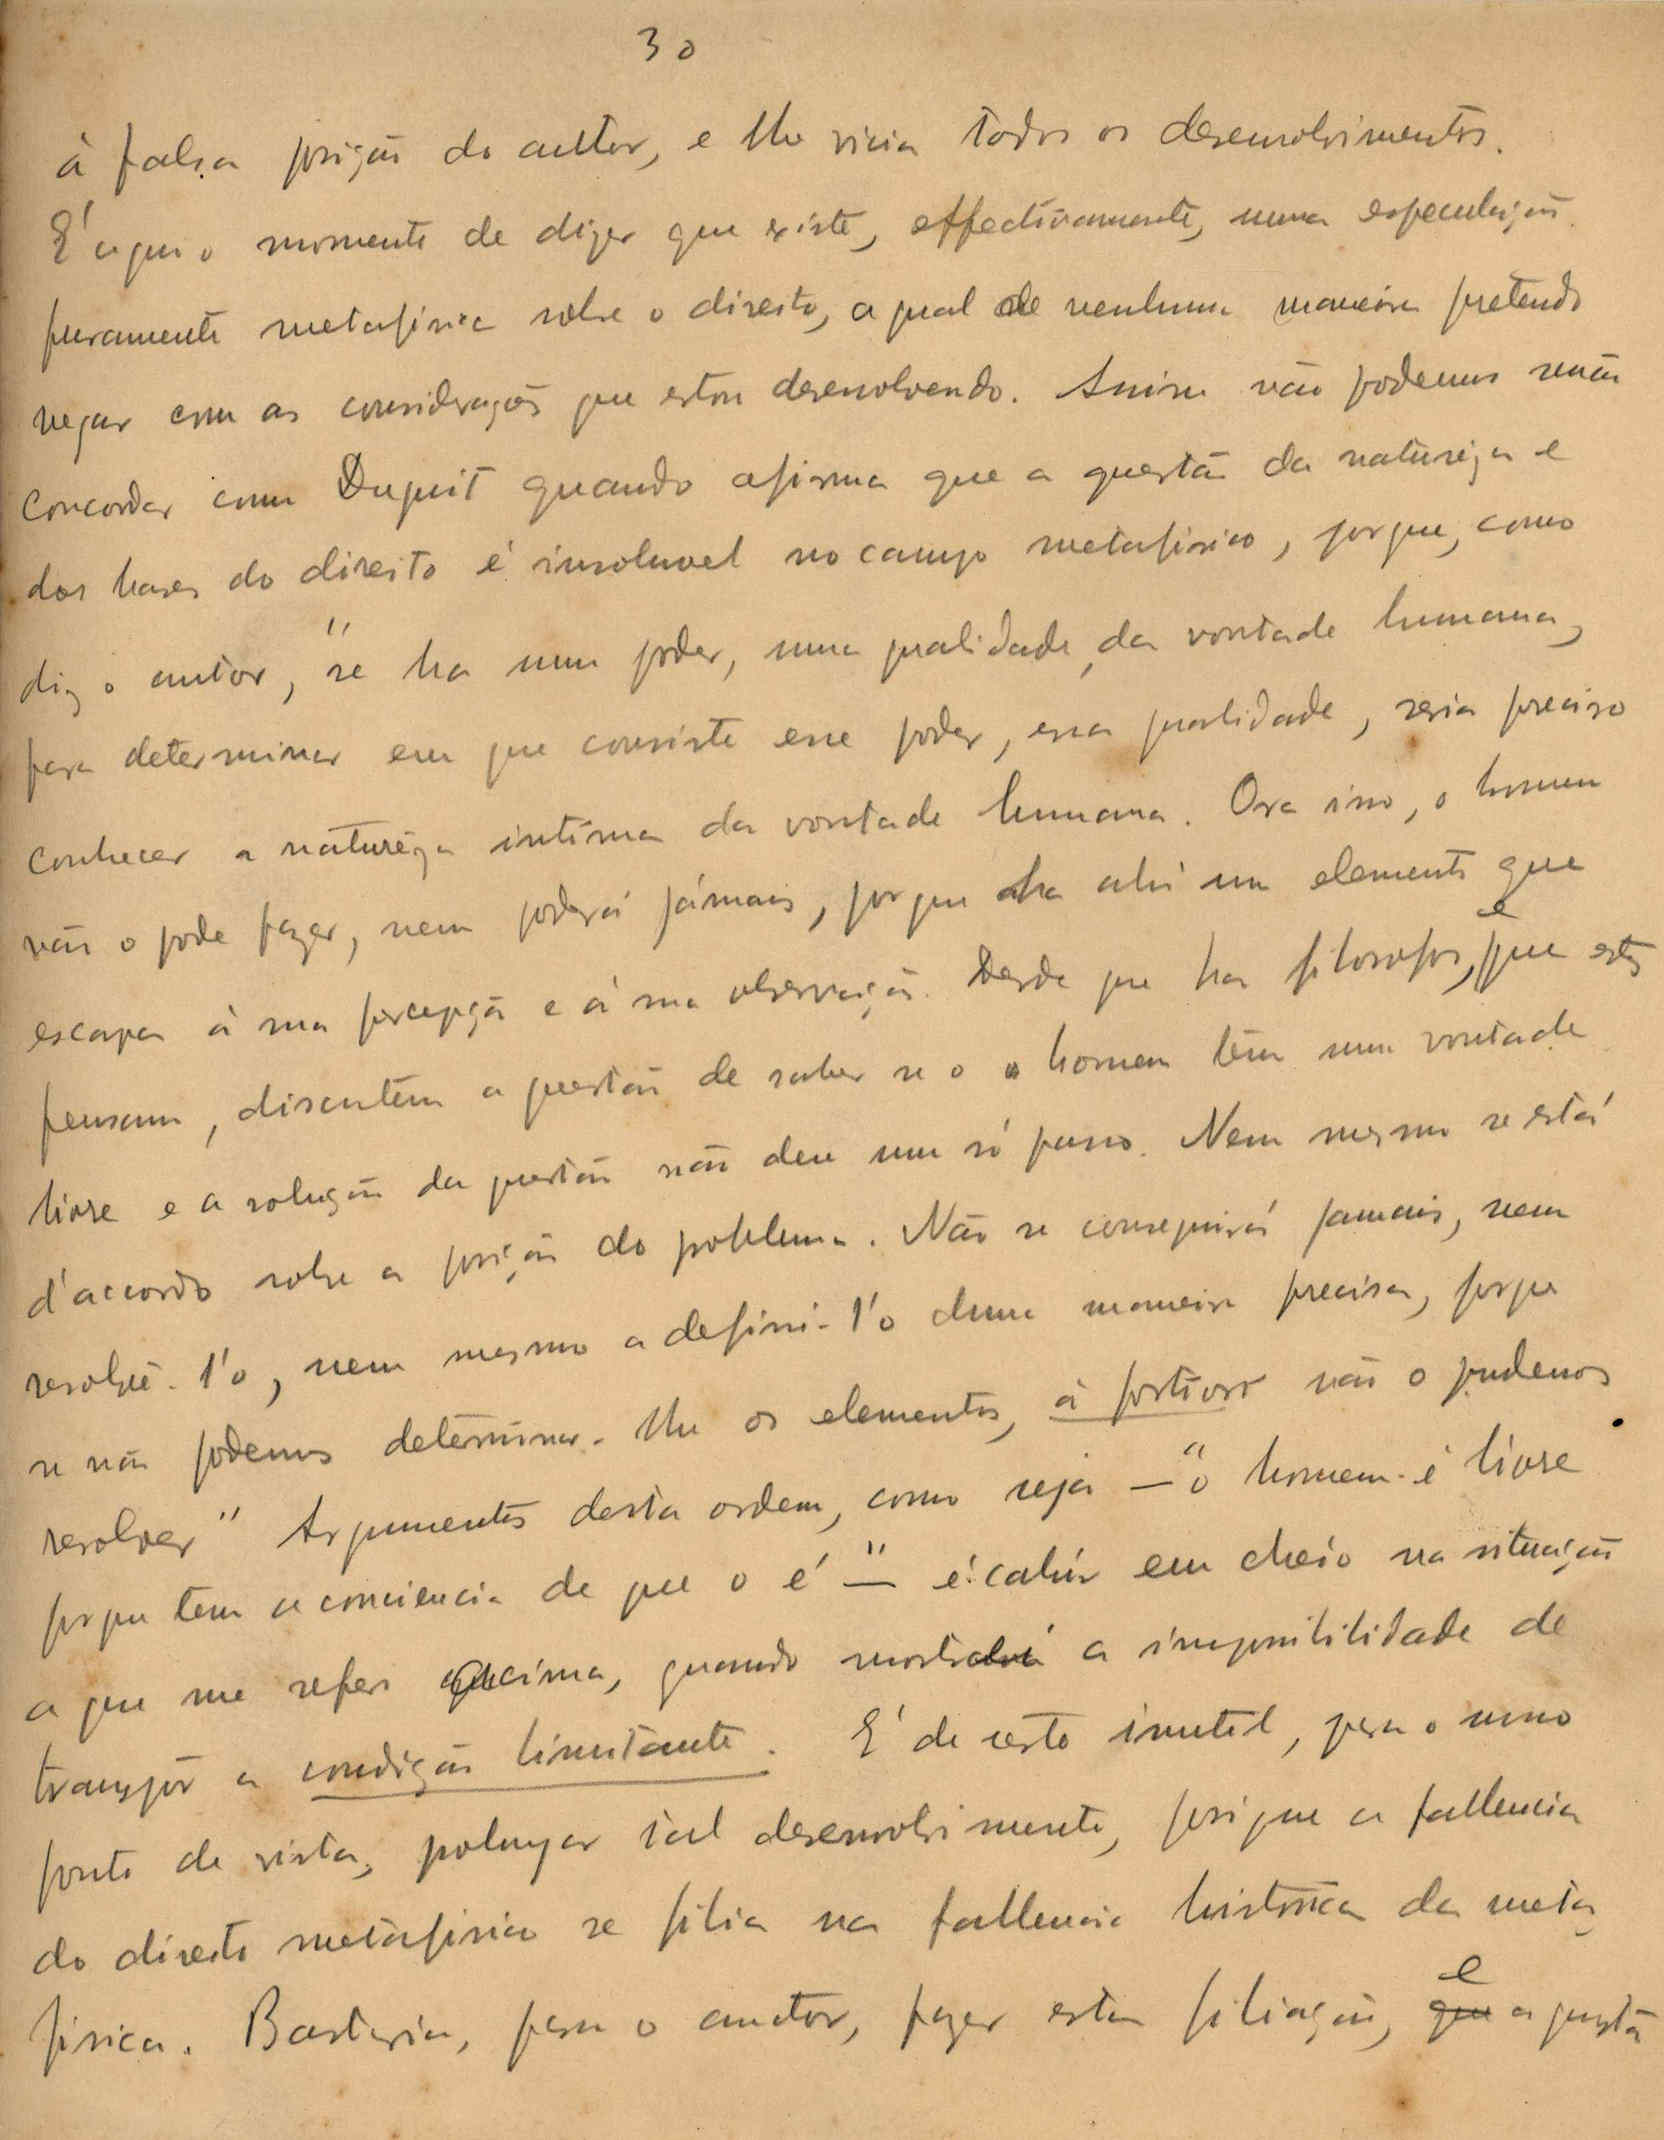 30
á falsa posição do auctor, e lhe vicia todos os desenvolvimentos.
É aqui o momento de dizer que existe, effectivamente, uma especulação
puramente metafisica sobre o direito, a qual de nenhuma maneira pretendo
negar com as considerações que estou desenvolvendo. Assim não podemos senão
concordar com Duguit quando afirma que a questão da natureza e
das bases do direito é insoluvel no campo metafisico, porque, como
diz o autor, "se ha um poder, uma qualidade da vontade humana,
para determinar em que consiste esse poder, essa qualidade, seria preciso
conhecer a natureza intima da vontade humana. Ora isso, o homem
não o pode fazer, nem poderá jámais, porque ha ahi um elemento que
escapa á sua percepção e á sua observação. Desde que ha filosofos, e que estes
pensam, discutem a questão de saber se o homem tem uma vontade
livre e a solução da questão não deu um só passo. Nem mesmo se está
d'accordo sobre a posição do problema. Não se conseguirá jamais, nem
resolvê-l'o, nem mesmo a defini-l'o duma maneira precisa, porque
se não podemos determinar-lhe os elementos, á fortiori não o podemos
resolver" Argumentos desta ordem, como seja — "o homem é livre
porque tem a conciencia de que o é" — é cahir em cheio na situação
a que me referi acima, quando mostrei a impossibilidade de
transpôr a condição limitante. É de certo inutil, para o nosso
ponto de vista, prolongar tal desenvolvimento, pois que a fallencia
do direito metafisico se filia na fallencia historica da meta
fisica. Bastaria, para o auctor, fazer esta filiação, e a questão